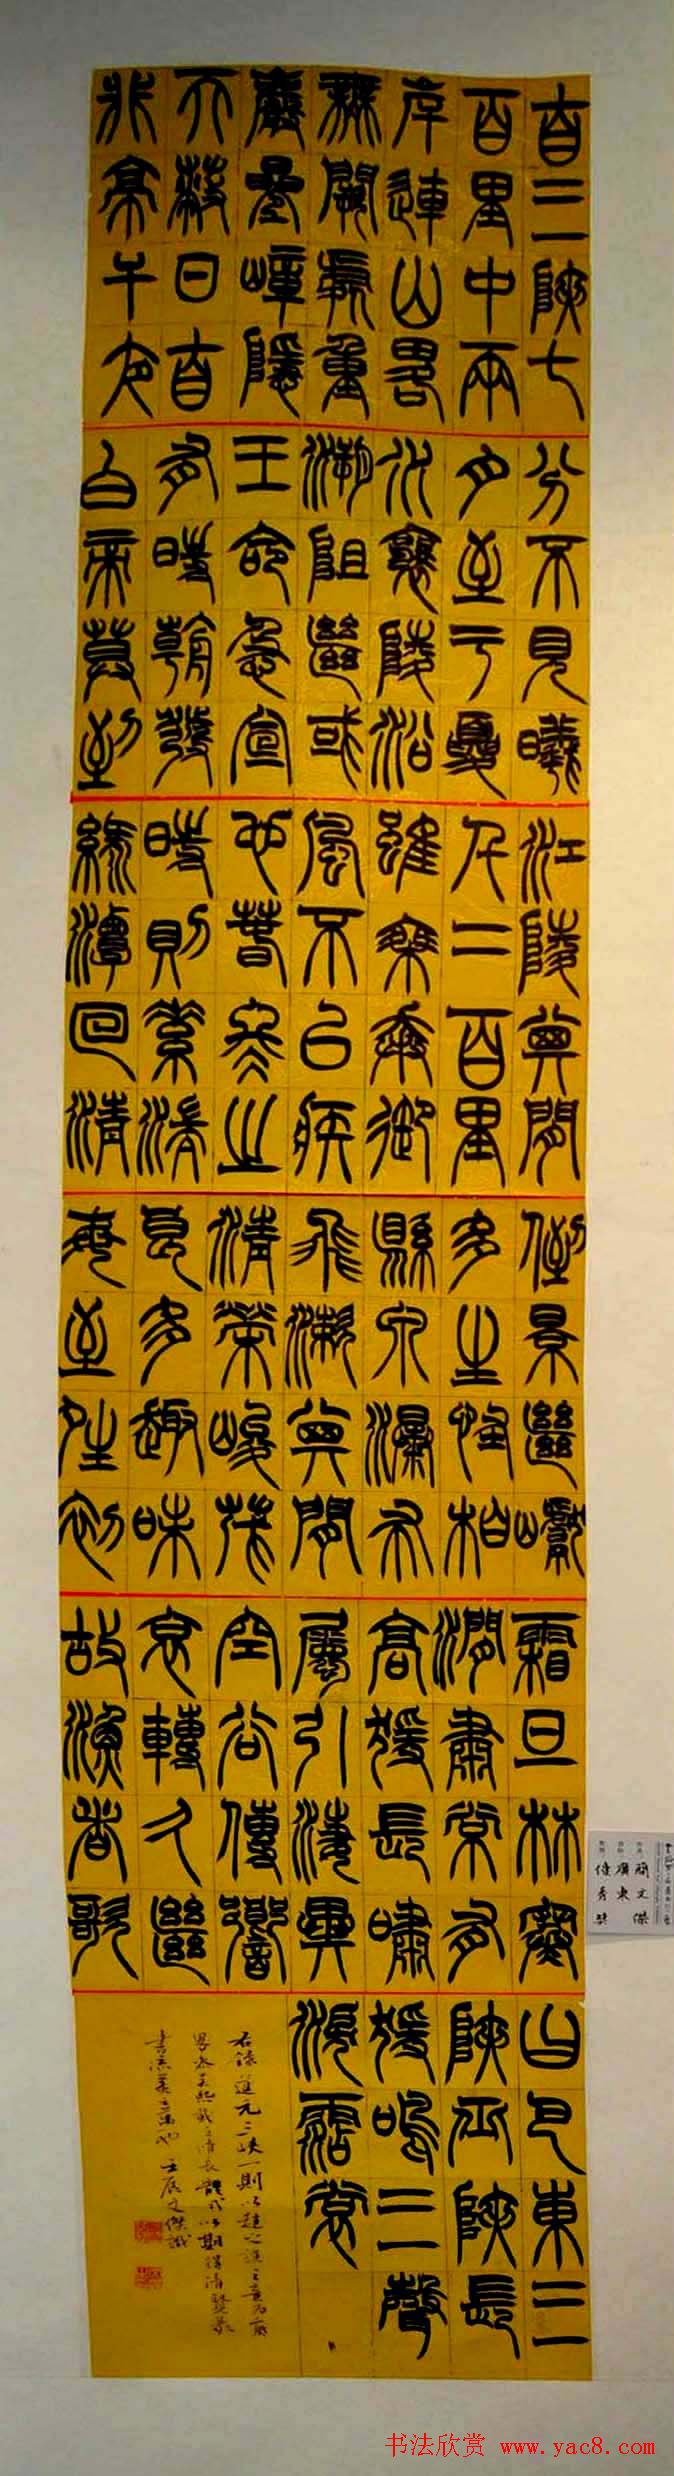 自三陝七
百里中兩
岸連山畧
無闕處重
巖疊嶂隱
天蔽日自
非亭午夜
分不見曦
月至于夏
水襄陵沿
泝阻絕或
王命急宣
有時朝發
白帝暮到
江陵其間
千二百里
雖乘奔御
風不以疾
也春冬之
時則素湍
綠潭回清
倒景絕巘
多生怪柏
懸泉瀑布
飛漱其間
清榮峻茂
良多趣味
每至晴初
霜旦林寒
澗肅常有
高猨長嘯
屬引淒異
空谷傳響
哀轉久絕
故漁者歌
曰巴東三
陝巫陝長
猨鳴三聲
淚霑裳
右錄道元三峽一則以
壬辰文傑識
簡文傑
廣東
優秀獎
书法欣赏 www.yac8.com